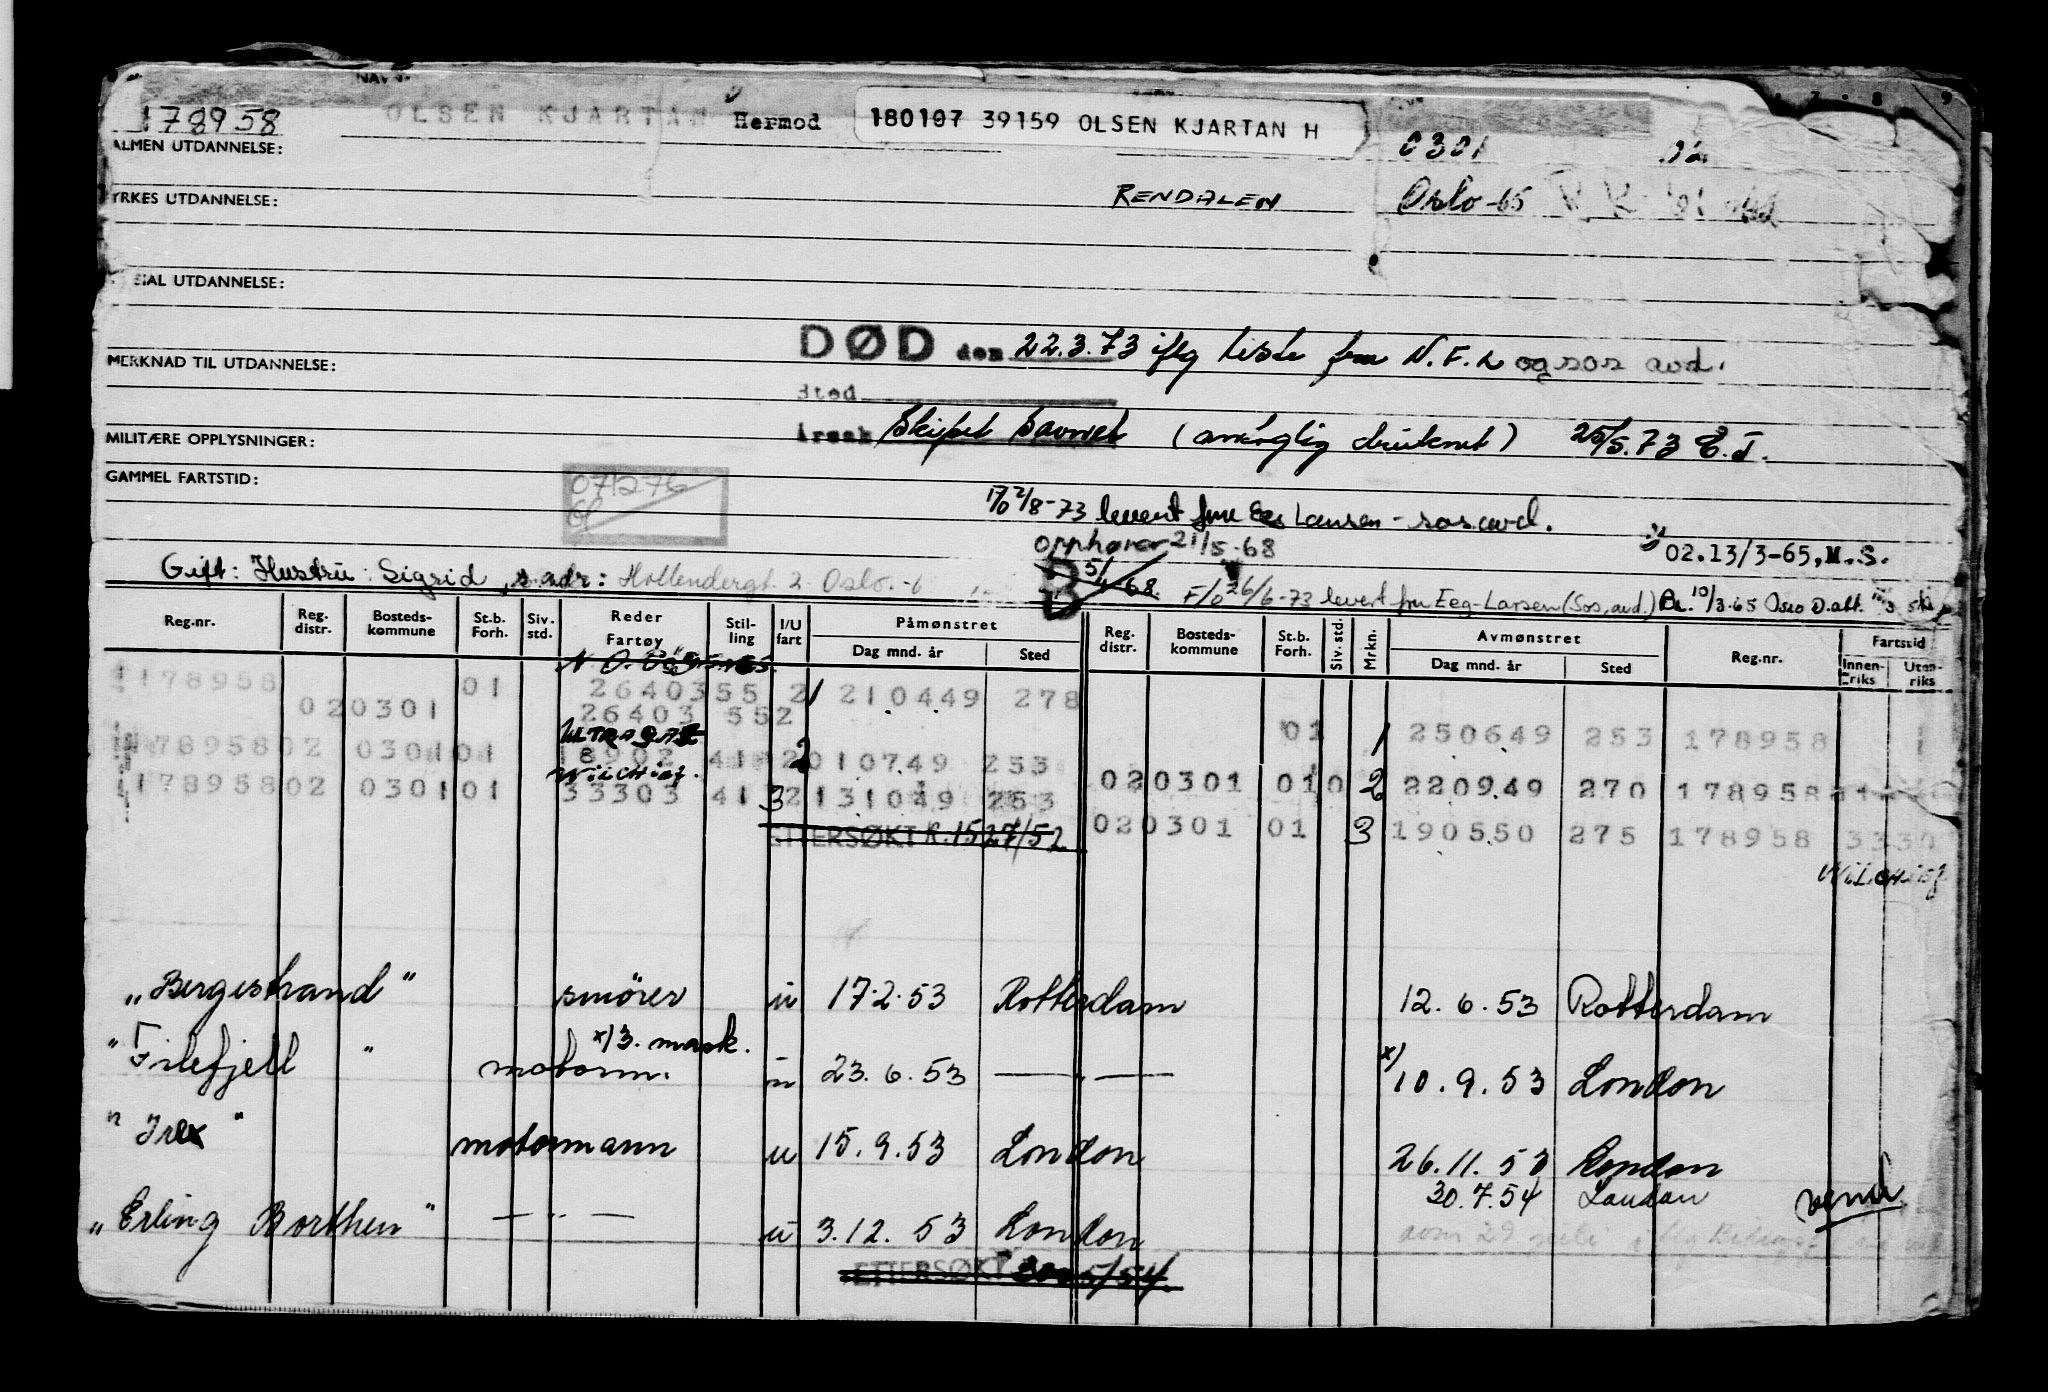 178958 OLSEN KJARTAN Hermod 180107 39159 OLSEN KJARTAN H
0301
ALMEN UTDANNELSE:
YRKES UTDANNELSE: RENDALEN Oslo-65
SIAL UTDANNELSE:
DØD den 22.3.73 iflg liste fra N.F.L og sos avd.
MERKNAD TIL UTDANNELSE:
Sted
Årsak Skipet Savnet (antaglig druknet) 25/5.73 E.J.
MILITÆRE OPPLYSNINGER:
GAMMEL FARTSTID: 071276
2/8-73 levert fru Eeg Larsen - sos.avd.
opphører 21/5-68
02.13/3-65, M.S.
Gift: Hustru: Sigrid, s. adr: Hollendergt. 2 Oslo.-6
B 5/4-68 F/o 26/6-73 levert fru Eeg-Larsen (Sos. avd.) 10/3-65 Oslo
Reg.nr. Reg. distr. Bosteds- kommune St.b. Forh. Siv. std. Reder Fartøy Stil- ling I/U fart Påmønstret Dag mnd. år Sted Reg. distr. Bosteds- kommune St.b. Forh. Siv. std. Mrkn. Avmønstret Dag mnd. år Sted Reg.nr. Fartstid Innen- riks Uten- riks
178958 01 26403 55 2 1 210449 278
020301 26403 552
ULTRAGAZ
01 1 250649 253 178958
178958 02 0301 01 18902 41 2 2 010749 253
Wilchief.
020301 01 0 2 220949 270 178958
178958 02 0301 01 33303 41 3 2 131049 253
020301 01 3 190550 275 178958 3330
ETTERSØKT R.1527/52
Wilchief
"Bergestrand" smører u 17.2.53 Rotterdam 12.6.53 Rotterdam
x) 3. mask.
"Filefjell" motorm. u 23.6.53 — " — x) 10.9.53 London
"Irex" motormann u 15.9.53 London 26.11.53 London
30.7.54 London vend
"Erling Borthen" — " — u 3.12.53 London
ETTERSØKT 5/54